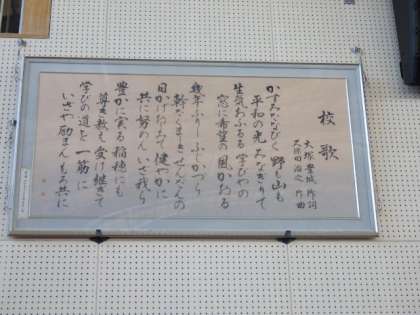 校歌
作詞
作曲
かすみたなびく野も山も
平和の光みなぎりて
生気あふるる学びやの
窓に希望の風かおる
幾年ふりしふじかづら
幹たくましきせんだんの
日かげおゐて健やかに
共に努めんいざ我ら
豊かに実る稲穂にも
尊き教え受け継ぎて
学びの道を一筋に
いざや励まんもろ共に